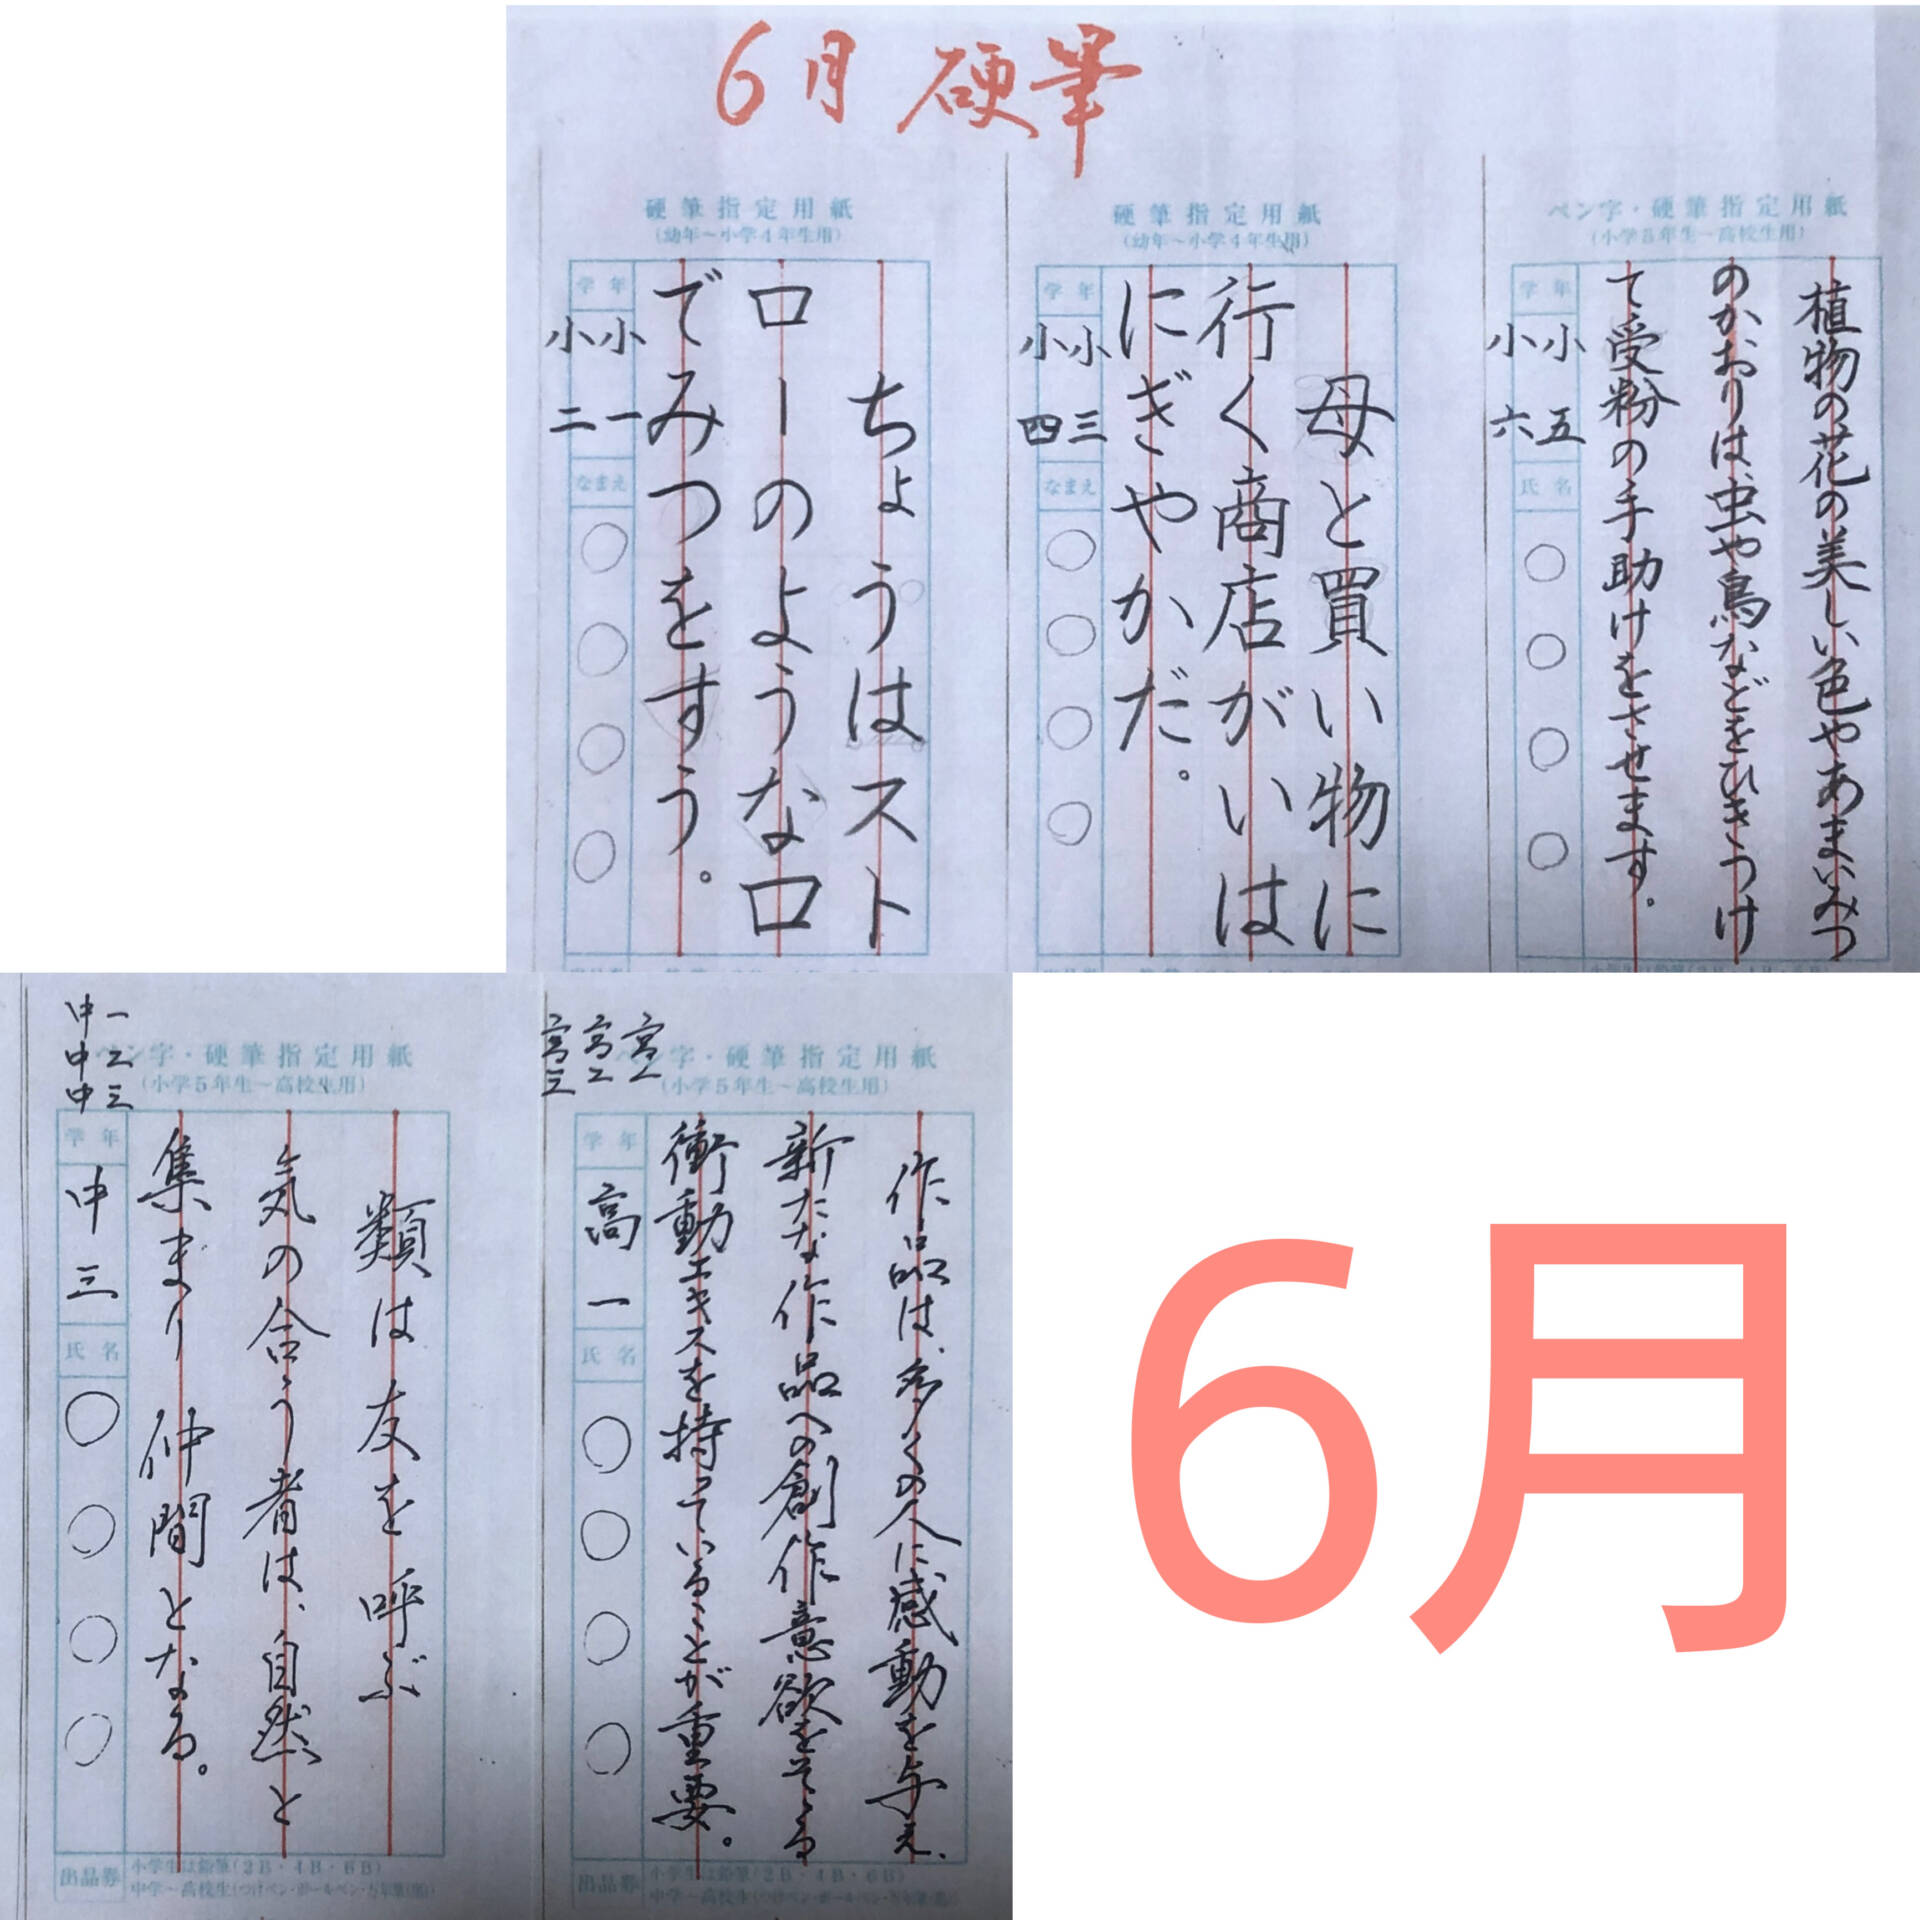 6月 硬筆
ペン字・硬筆指定用紙
(小学5年生~高校生用)
植物の花の美しい色やあまいみつ
のかおりは、虫や鳥などをひきつけ
て受粉の手助けをさせます。
学年
小五
小六
氏名
○○○○
硬筆指定用紙
(幼年~小学4年生用)
母と買い物に
行く商店がいは
にぎやかだ。
学年
小三
小四
なまえ
○○○○
硬筆指定用紙
(幼年~小学4年生用)
ちょうはスト
ローのような口
でみつをすう。
学年
小一
小二
なまえ
○○○○
高一
高二
高三
ペン字・硬筆指定用紙
(小学5年生~高校生用)
作品は、多くの人に感動を与え、
新たな作品への創作意欲をそそる
衝動エキスを持っていることが重要。
学年
高一
氏名
○○○○
出品券
小学生は鉛筆(2B・4B・6B)
中一
中二
中三
ペン字・硬筆指定用紙
(小学5年生~高校生用)
類は友を呼ぶ
気の合う者は、自然と
集まり仲間となる。
学年
中三
氏名
○○○○
出品券
小学生は鉛筆(2B・4B・6B)
中学~高校生(つけペン・ボールペン・万年筆(黒))
6月